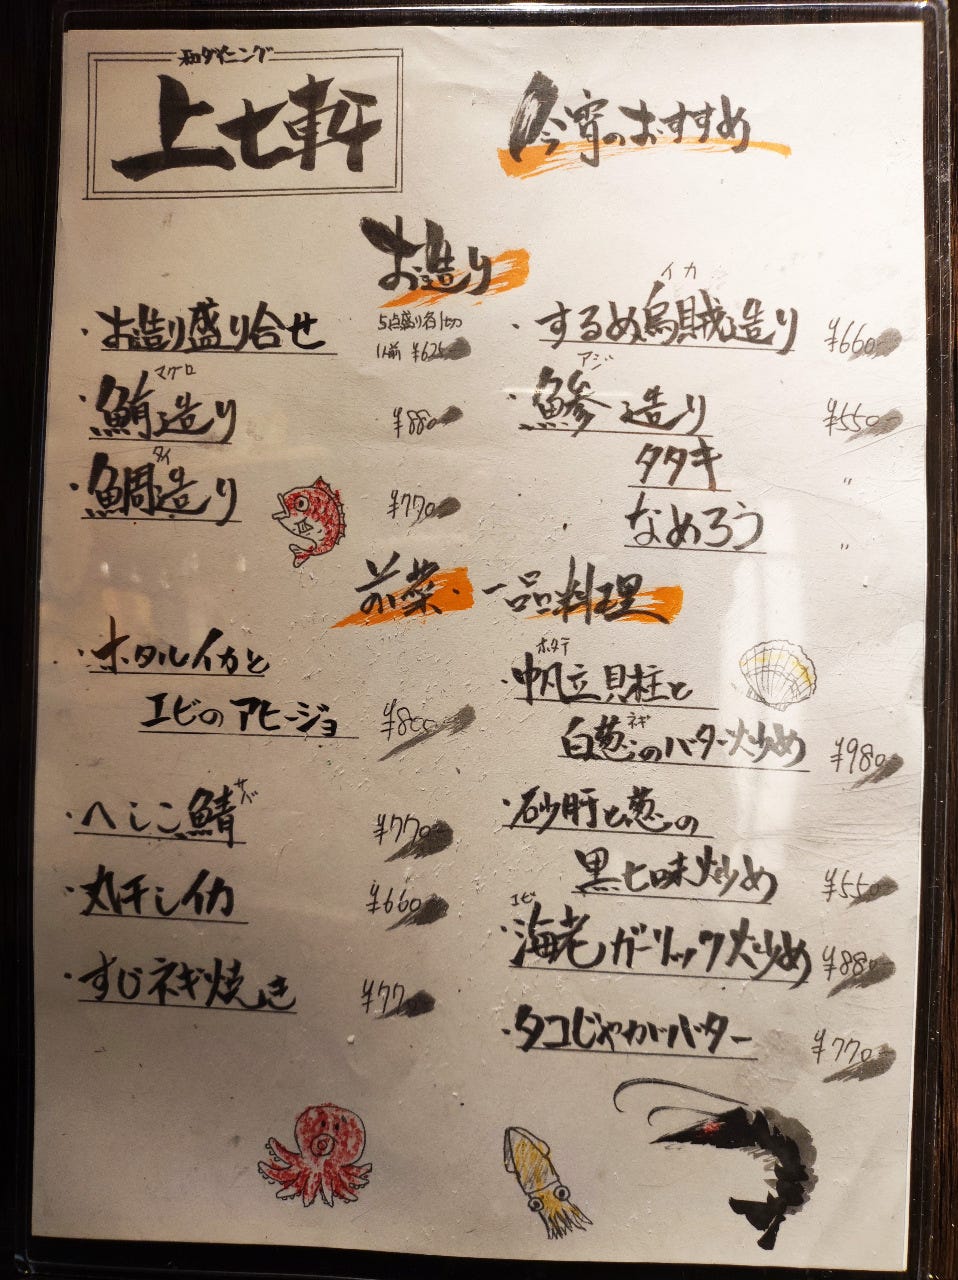 和ダイニング
上七軒
今宵のおすすめ
お造り
・お造り盛り合せ
5点盛り各1切
1人前 ¥625
・鮪造り
マグロ
¥880
・鯛造り
タイ
¥770
・するめ烏賊造り
イカ
¥660
・鯵造り
アジ
¥550
タタキ
〃
なめろう
〃
前菜・一品料理
・ホタルイカと
エビのアヒージョ
¥800
・へしこ鯖
サバ
¥770
・丸干しイカ
¥660
・すじネギ焼き
¥770
・帆立貝柱と
ホタテ
白葱のバター炒め
ネギ
¥980
・砂肝と葱の
黒七味炒め
¥550
・海老ガーリック炒め
エビ
¥880
・タコじゃがバター
¥770